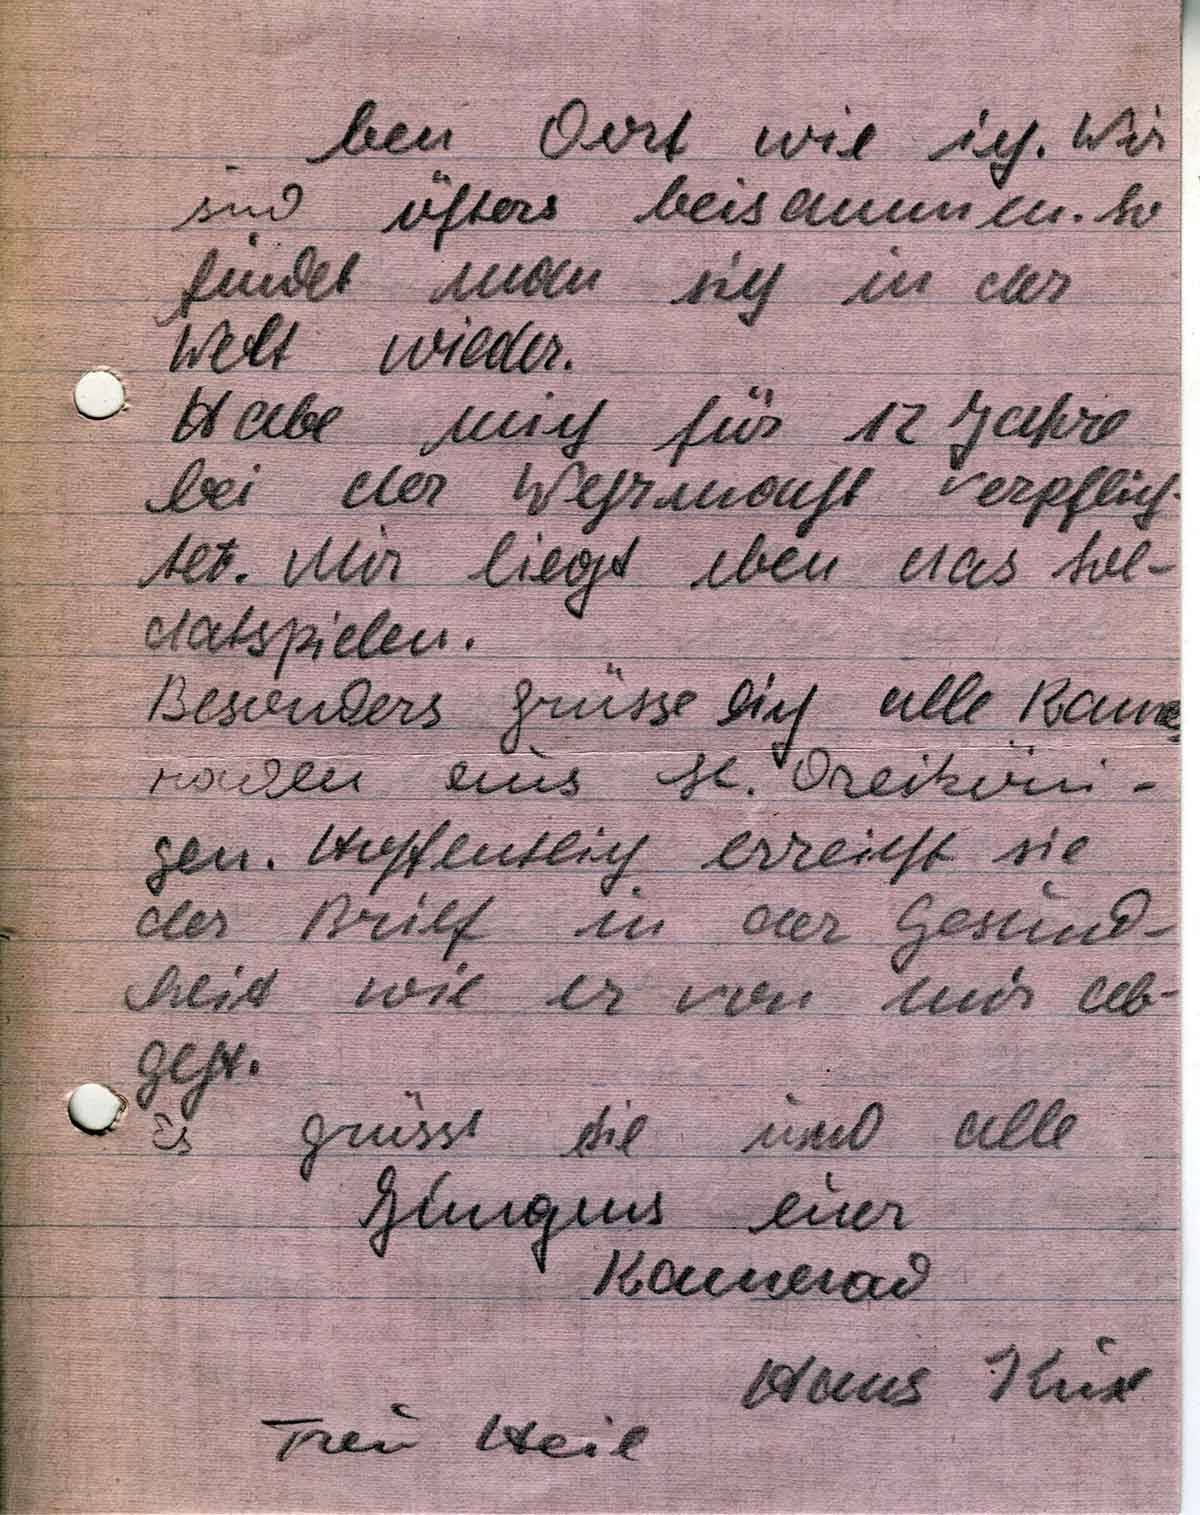 ben Oert wie ich. Wir
sind öfters beisammen. So
findet man sich in der
Welt wieder.
Habe mich für 12 Jahre
bei der Wehrmacht verpflich-
tet. Mir liegt eben das Sol-
datspielen.
Besonders grüsse Sich alle Kame-
raden aus St. Dreiköni-
gen. Hoffentlich erreicht sie
der Brief in der Gesund-
heit wie er von mir ab-
geht.
Es grüsst sie und alle
Jungens einer
Kamerad
Hans
Treu Heil